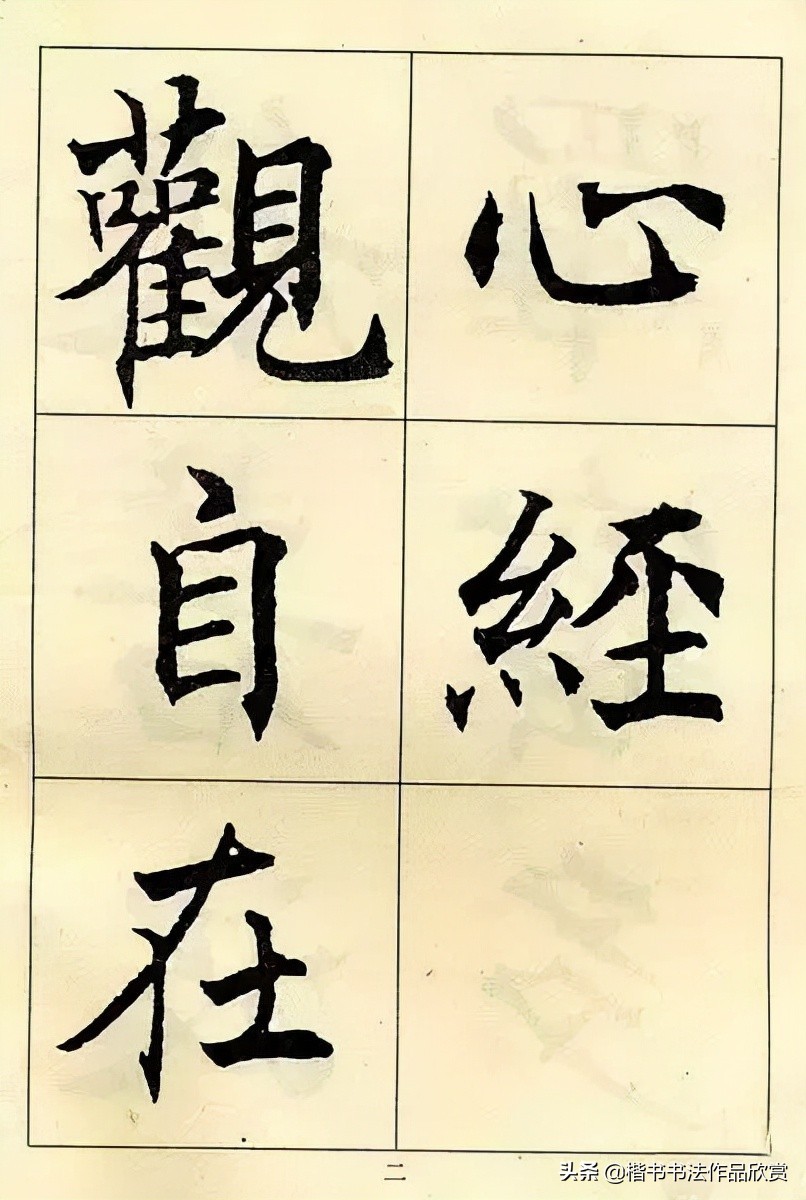 心經
觀自在
二
头条 @楷书书法作品欣赏